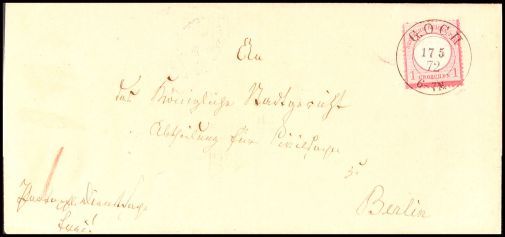 GOCH
17 5
72
6-7N.
1 GROSCHEN 1
An
das Königliche Stadtgericht
Abtheilung für Civilsachen
zu
Berlin